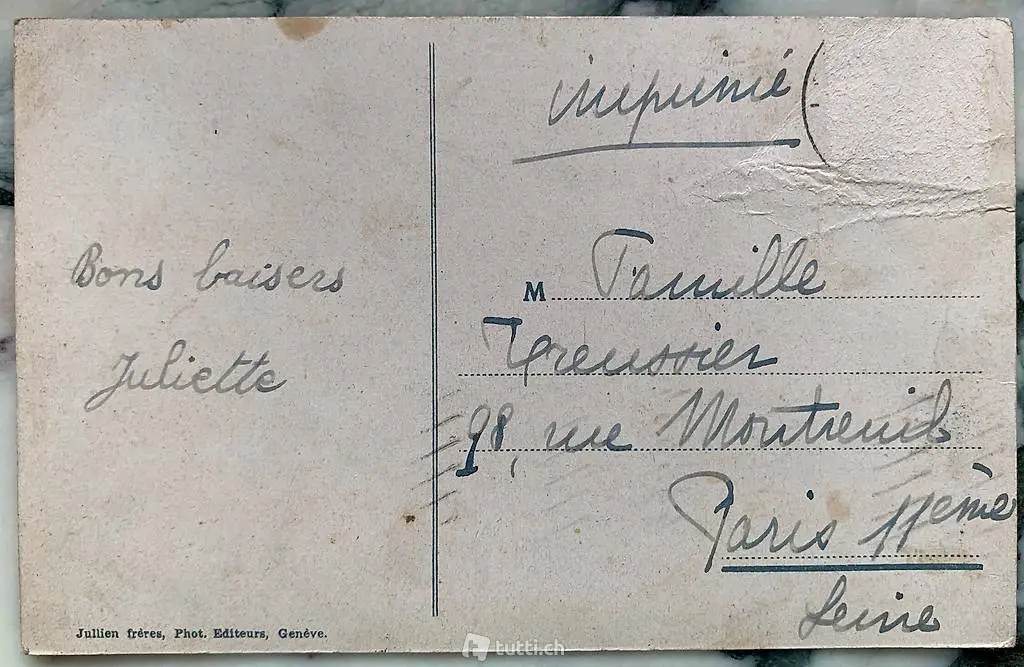 imprimé
Bons baisers
Juliette
M Famille
Treussier
98, rue Montreuil
Paris 11ème
Seine
Jullien frères, Phot. Editeurs, Genève.
tutti.ch